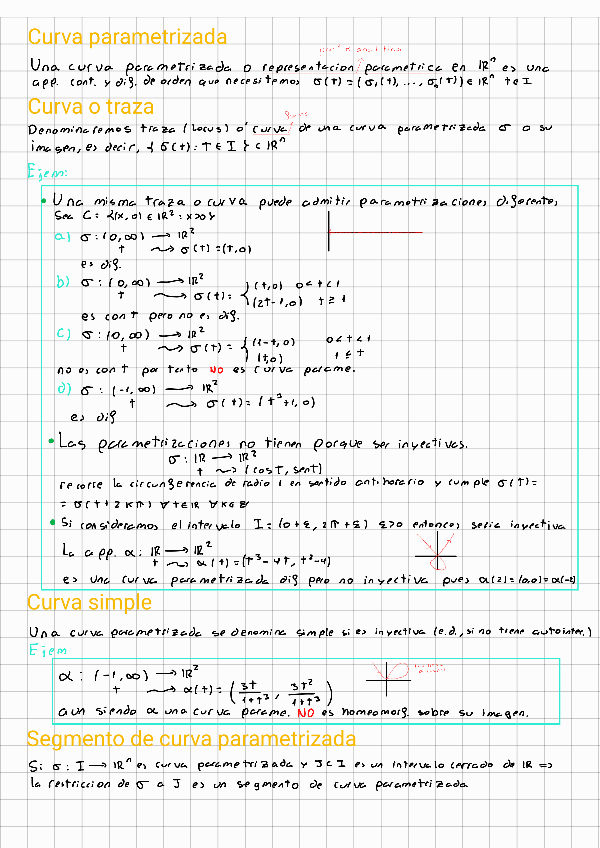 Curva parametrizada
Una curva parametrizada o representacion parametrica en ℝⁿ es una
app. cont. y dif. de orden que necesitemos σ(t)=(σ₁(t), ..., σₙ(t)) ∈ ℝⁿ t∈I
Curva o traza
Denominaremos traza (locus) o curva de una curva parametrizada σ a su
imagen, es decir, {σ(t): t ∈ I} ⊂ ℝⁿ
Ejem:
• Una misma traza o curva puede admitir parametrizaciones diferentes
Sea C = {(x,0) ∈ ℝ² : x>0}
a) σ: (0,∞) → ℝ²
t ⤳ σ(t) = (t,0)
es dif.
b) σ: (0,∞) → ℝ²
t ⤳ σ(t) = { (t,0) 0<t<1
(2t-1,0) t≥1
es cont pero no es dif.
c) σ: (0,∞) → ℝ²
t ⤳ σ(t) = { (1-t,0) 0<t<1
(t,0) 1≤t
no es cont por tanto NO es curva parame.
d) σ: (-1,∞) → ℝ²
t ⤳ σ(t) = (t³+1,0)
es dif
• Las parametrizaciones no tienen porque ser inyectivas.
σ: ℝ → ℝ²
t ⤳ (cost, sent)
recorre la circunferencia de radio 1 en sentido antihorario y cumple σ(t)=
= σ(t+2kπ) ∀t∈ℝ ∀k∈ℤ
• Si consideramos el intervalo I=(0+ε, 2π+ε) ε>0 entonces seria inyectiva
La app. α: ℝ → ℝ²
t ⤳ α(t) = (t³-4t, t²-4)
es una curva parametrizada dif pero no inyectiva pues α(2)=(0,0)=α(-2)
Curva simple
Una curva parametrizada se denomina simple si es inyectiva (e.d., si no tiene autointer.)
Ejem
α: (-1,∞) → ℝ²
t ⤳ α(t) = (3t/1+t³, 3t²/1+t³)
aun siendo α una curva parame. NO es homeomorf. sobre su imagen.
Segmento de curva parametrizada
Si σ: I → ℝⁿ es curva parametrizada y J⊂I es un intervalo cerrado de ℝ ⇒
la restriccion de σ a J es un segmento de curva parametrizada